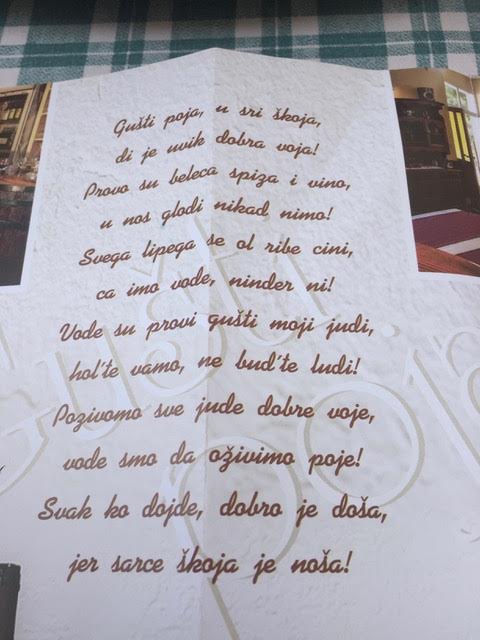 Gušti poja, u sri škoja,
di je uvik dobra voja!
Provo su beleca spiza i vino,
u nos glodi nikad nimo!
Svega lipega se ol ribe cini,
ca imo vode, ninder ni!
Vode su provi gušti moji judi,
hol'te vamo, ne bud'te ludi!
Pozivomo sve jude dobre voje,
vode smo da oživimo poje!
Svak ko dojde, dobro je doša,
jer sarce škoja je noša!